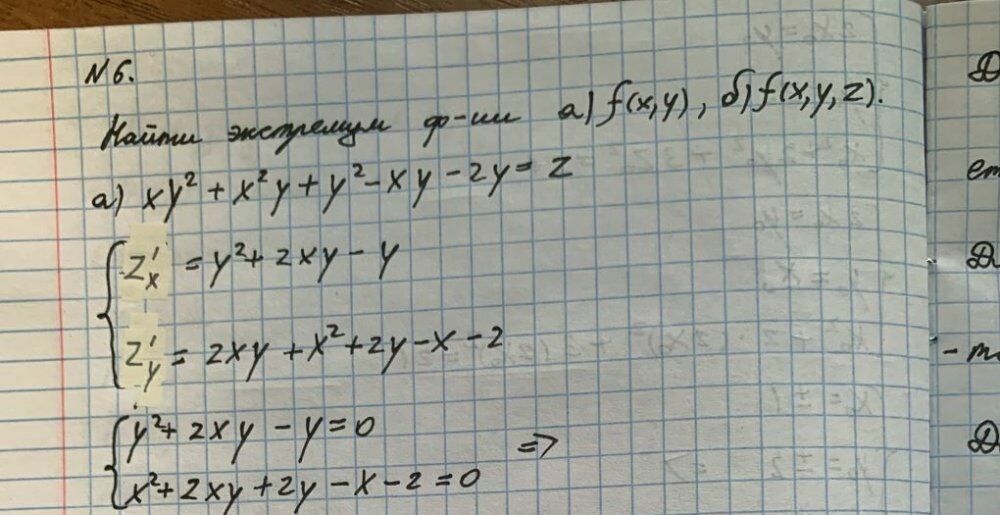 N 6.
Найти экстремум ф-ии а) f(x,y), б) f(x,y,z).
а) xy² + x²y + y² - xy - 2y = z
z'x = y² + 2xy - y
z'y = 2xy + x² + 2y - x - 2
y² + 2xy - y = 0 =>
x² + 2xy + 2y - x - 2 = 0